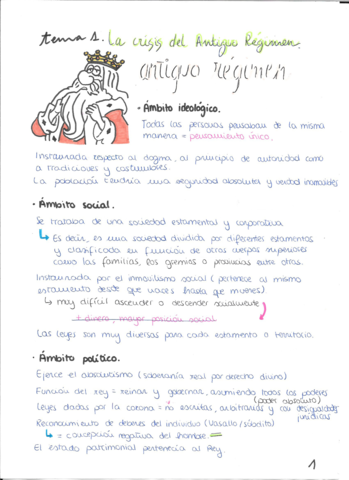 tema 1. La crisis del Antiguo Régimen.
antiguo régimen
· Ámbito ideológico.
Todas las personas pensaban de la misma
manera = pensamiento único.
Instaurada respecto al dogma, al principio de autoridad como
a tradiciones y costumbres.
La población tendría una seguridad absoluta y verdad inamovibles
· Ámbito social.
Se trataba de una sociedad estamental y corporativa
↳ Es decir, es una sociedad dividida por diferentes estamentos
y clasificada en función de otros cuerpos superiores
como las familias, los gremios o provincias entre otros.
Instaurada por el inmovilismo social (pertenece al mismo
estamento desde que naces hasta que mueres)
↳ muy difícil ascender o descender socialmente
+ dinero, mayor posición social
Las leyes son muy diversas para cada estamento o territorio.
· Ámbito político.
Ejerce el absolutismo (soberanía real por derecho divino)
Función del rey = reinar y gobernar, asumiendo todos los poderes
(poder absoluto)
Leyes dadas por la corona = no escritas, arbitrarias y con desigualdades
jurídicas
Reconocimiento de deberes del individuo (vasallo/súbdito)
↳ = concepción negativa del hombre.
El estado patrimonial pertenecía al Rey.
1